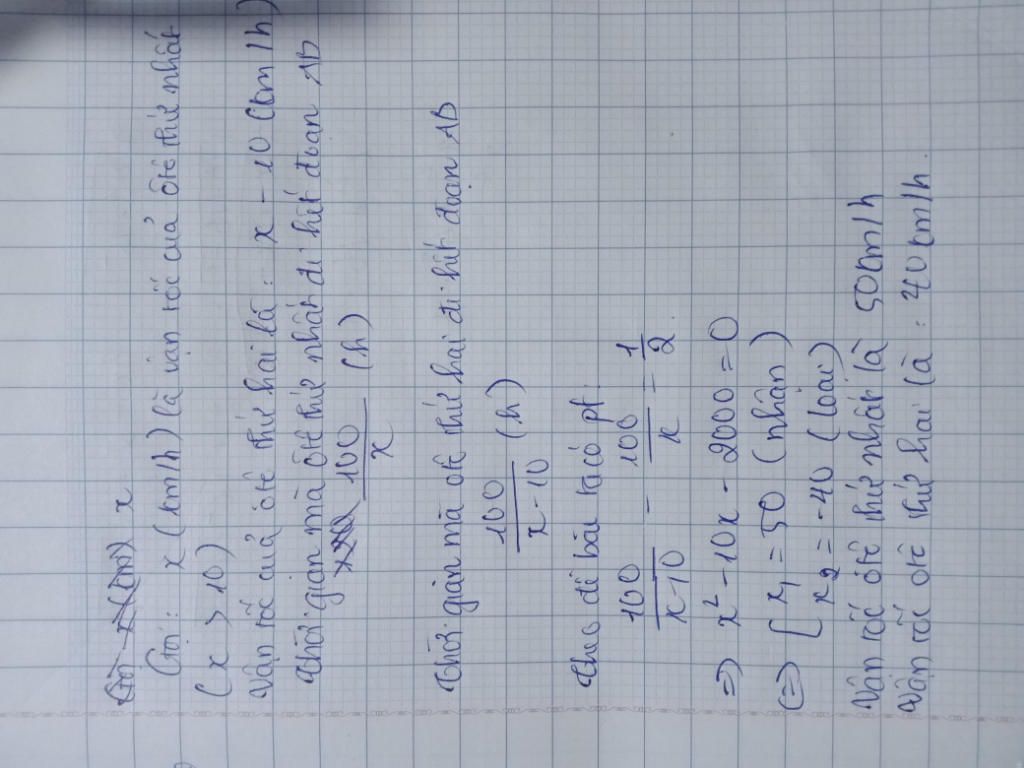 Gọi x (km) x
Gọi: x (km/h) là vận tốc của ôtô thứ nhất
(x > 10)
Vận tốc của ôtô thứ hai là: x - 10 (km/h)
Thời gian mà ôtô thứ nhất đi hết đoạn AB
100/x (h)
Thời gian mà ôtô thứ hai đi hết đoạn AB
100/(x - 10) (h)
Theo đề bài ta có pt:
100/(x-10) - 100/x = 1/2.
=> x² - 10x - 2000 = 0
<=> [ x₁ = 50 (nhận)
x₂ = -40 (loại)
Vận tốc ôtô thứ nhất là 50km/h
Vận tốc ôtô thứ hai là: 40km/h.